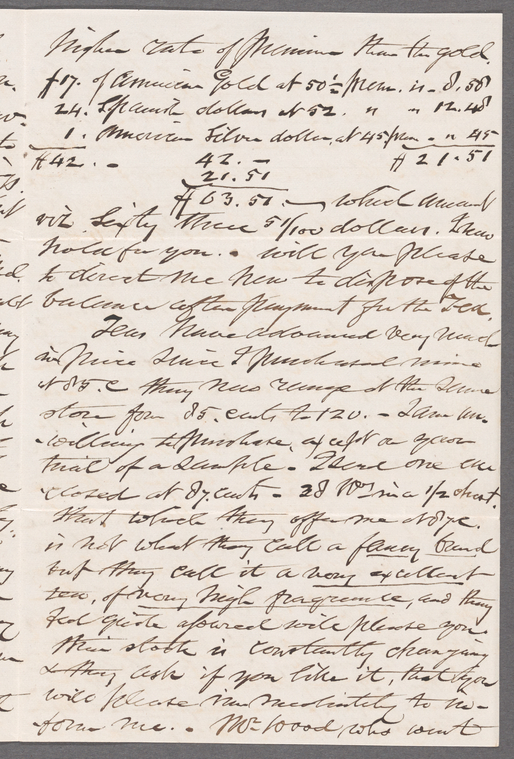 higher rate of Premium than the gold.
$17. of American Gold at 50½ Prem. is - 8.58
24. Spanish dollars at 52. " " 12.48
1. American Silver dollar, at 45/Prem - " 45
$42. - 42. - $21.51
21.51
$63.51. — which amount
viz. Sixty three 51/100 dollars. I now
hold for you. - will you please
to direct me how to dispose of the
balance after payment for the Tea.
Teas have advanced very much
in Price since I purchased mine
at 85. c they now range at the same
store from 85. cents to 120. - I am un-
-willing to purchase, except on your
trial of a sample - I send one en
closed at 87. cents - 28 in a 1/2 chest.
that which they offer me at 87c.
is not what they call a fancy brand
but they call it a very excellent
tea, of very high fragrance, and they
feel quite assured will please you.
their stock is constantly changing
& they ask if you like it, that you
will please immediately to in-
form me. - Mr Wood who went